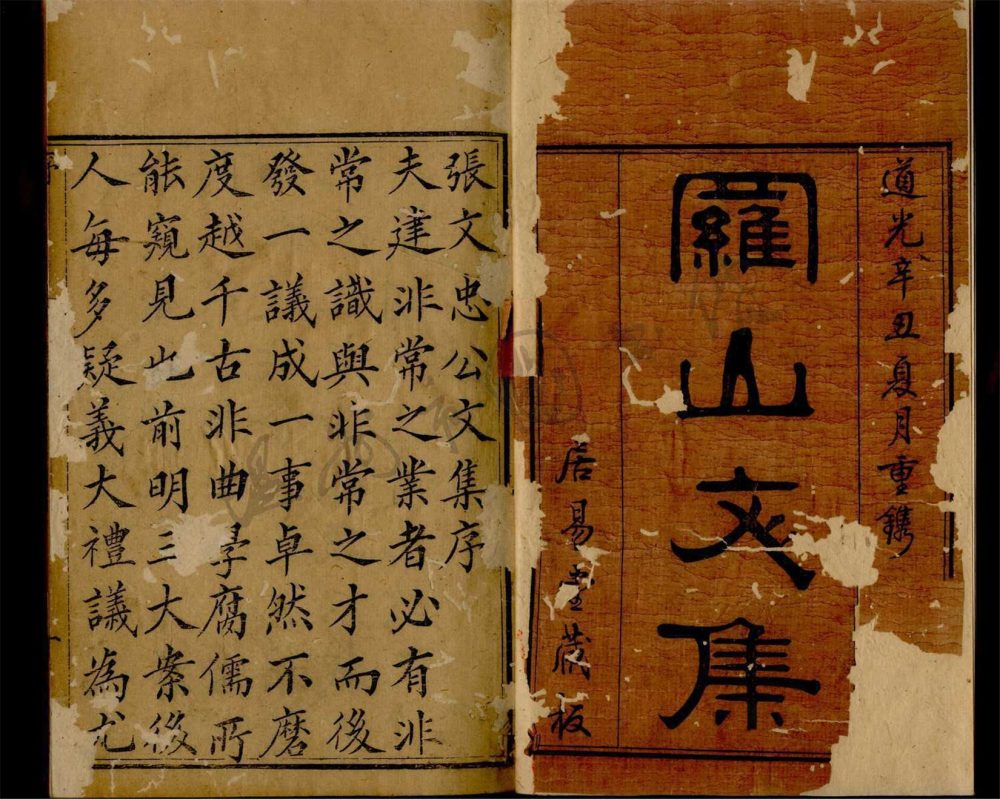 道光辛丑夏月重鐫
羅山文集
居易堂藏板
張文忠公文集序
夫建非常之業者必有非
常之識與非常之才而後
發一議成一事卓然不磨
度越千古非曲學腐儒所
能窺見此前明三大案後
人每多疑義大禮議為尤